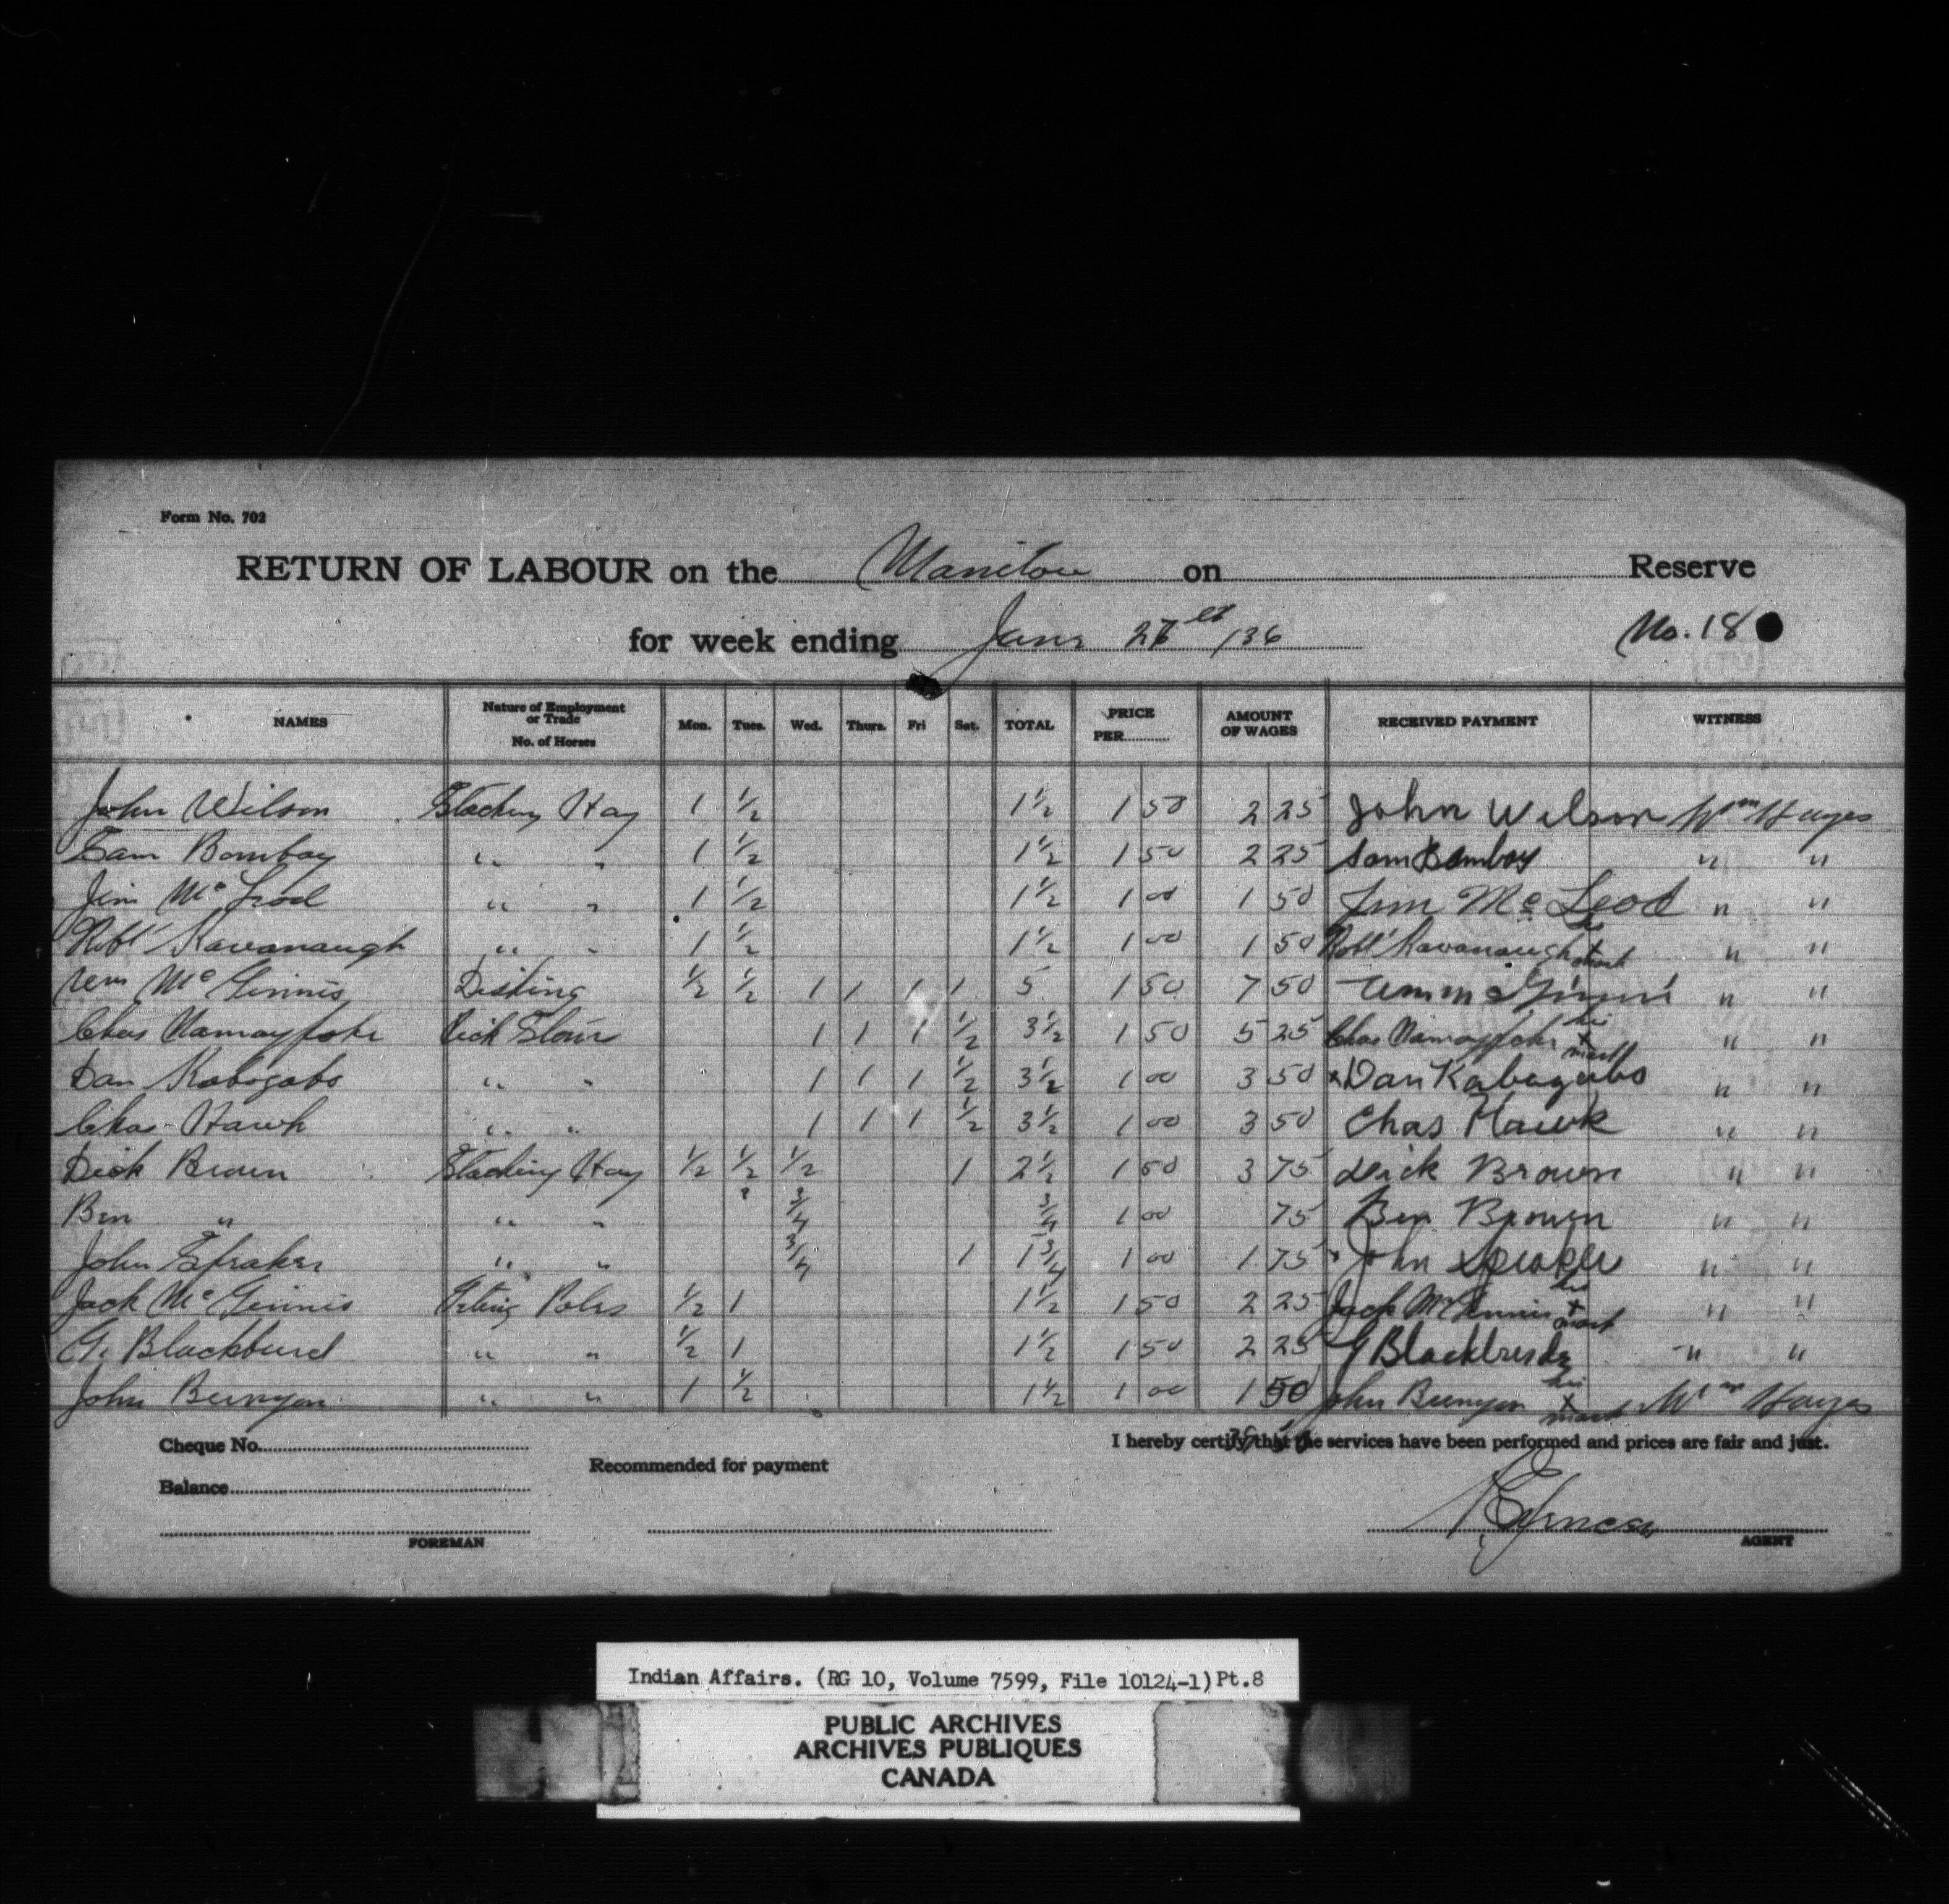 Form No. 702
RETURN OF LABOUR on the Manitou on Reserve
for week ending June 27 /36 No. 18
NAMES Nature of Employment or Trade No. of Horses Mon. Tues. Wed. Thurs. Fri Sat. TOTAL PRICE PER AMOUNT OF WAGES RECEIVED PAYMENT WITNESS
John Wilson Stacking Hay 1 1/2 1 1/2 1 50 2 25 John Wilson Wm Hayes
Sam Bombay " " 1 1/2 1 1/2 1 50 2 25 Sam Bombay " "
Jim McLeod " " 1 1/2 1 1/2 1 00 1 50 Jim McLeod " "
Robt Kavanaugh " " 1 1/2 1 1/2 1 00 1 50 Robt Kavanaugh his + mark " "
Wm McGinnis Disking 1/2 1/2 1 1 1 1 5 1 50 7 50 " "
Chas Namaypoke 1 1 1 1/2 3 1/2 1 50 5 25 Chas Namaypoke his + mark " "
Dan Kabogabo " " 1 1 1 1/2 3 1/2 1 00 3 50 x Dan Kabagabo " "
Chas Hawk " " 1 1 1 1/2 3 1/2 1 00 3 50 Chas Hawk " "
Dick Brown Stacking Hay 1/2 1/2 1/2 1 2 1/2 1 50 3 75 Dick Brown " "
Ben " " " 3/4 3/4 1 00 75 Ben Brown " "
John Speaker " " 3/4 1 1 3/4 1 00 1 75 x John Speaker " "
Jack McGinnis Poles 1/2 1 1 1/2 1 50 2 25 Jack McGinnis his + mark " "
G. Blackbird " " 1/2 1 1 1/2 1 50 2 25 G Blackbird " "
John Bunyan " " 1 1/2 1 1/2 1 00 1 50 John Bunyan his + mark Wm Hayes
Cheque No. I hereby certify that the services have been performed and prices are fair and just.
Recommended for payment
Balance
FOREMAN AGENT
Indian Affairs. (RG 10, Volume 7599, File 10124-1) Pt.8
PUBLIC ARCHIVES
ARCHIVES PUBLIQUES
CANADA